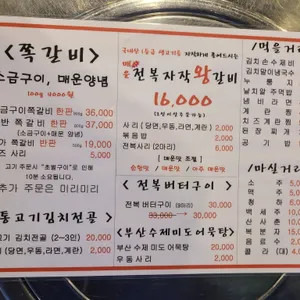 <쪽갈비>
소금구이, 매운양념
100g 4000원
소금구이쪽갈비 한판 36,000
반 쪽갈비 한판 37,000
(소금구이+매운 양념)
19,000
즈 사리 5,000
고기 주문시 "초벌구이"로 인하여
10분 소요됩니다.
추가 주문은 미리미리
통고기김치전골
고기 김치전골 (2~3인) 20,000
(당면,우동,라면,계란) 2,000
전복자작왕갈비
16,000
사리 (당면,우동,라면,계란) 2,000
볶음밥 2,000
전복사리(2마리) 6,000
(매운맛 조절)
순한맛 / 매운맛 / 아주 매운맛
<전복버터구이>
전복 버터구이 (9마리)
33,000 → 30,000
<부산수제미도어묵탕>
부산 수제 미도 어묵탕 20,000
우동사리 2,000
/먹을거리
김치손수제비
김치말이냉국수
누룽지
날치알 주먹밥
냄비라면
계란찜
치즈계란찜
공기밥
/마실거리
소주
맥주
청하
백세주
산사춘
복분자
음료수
콜라 (대)